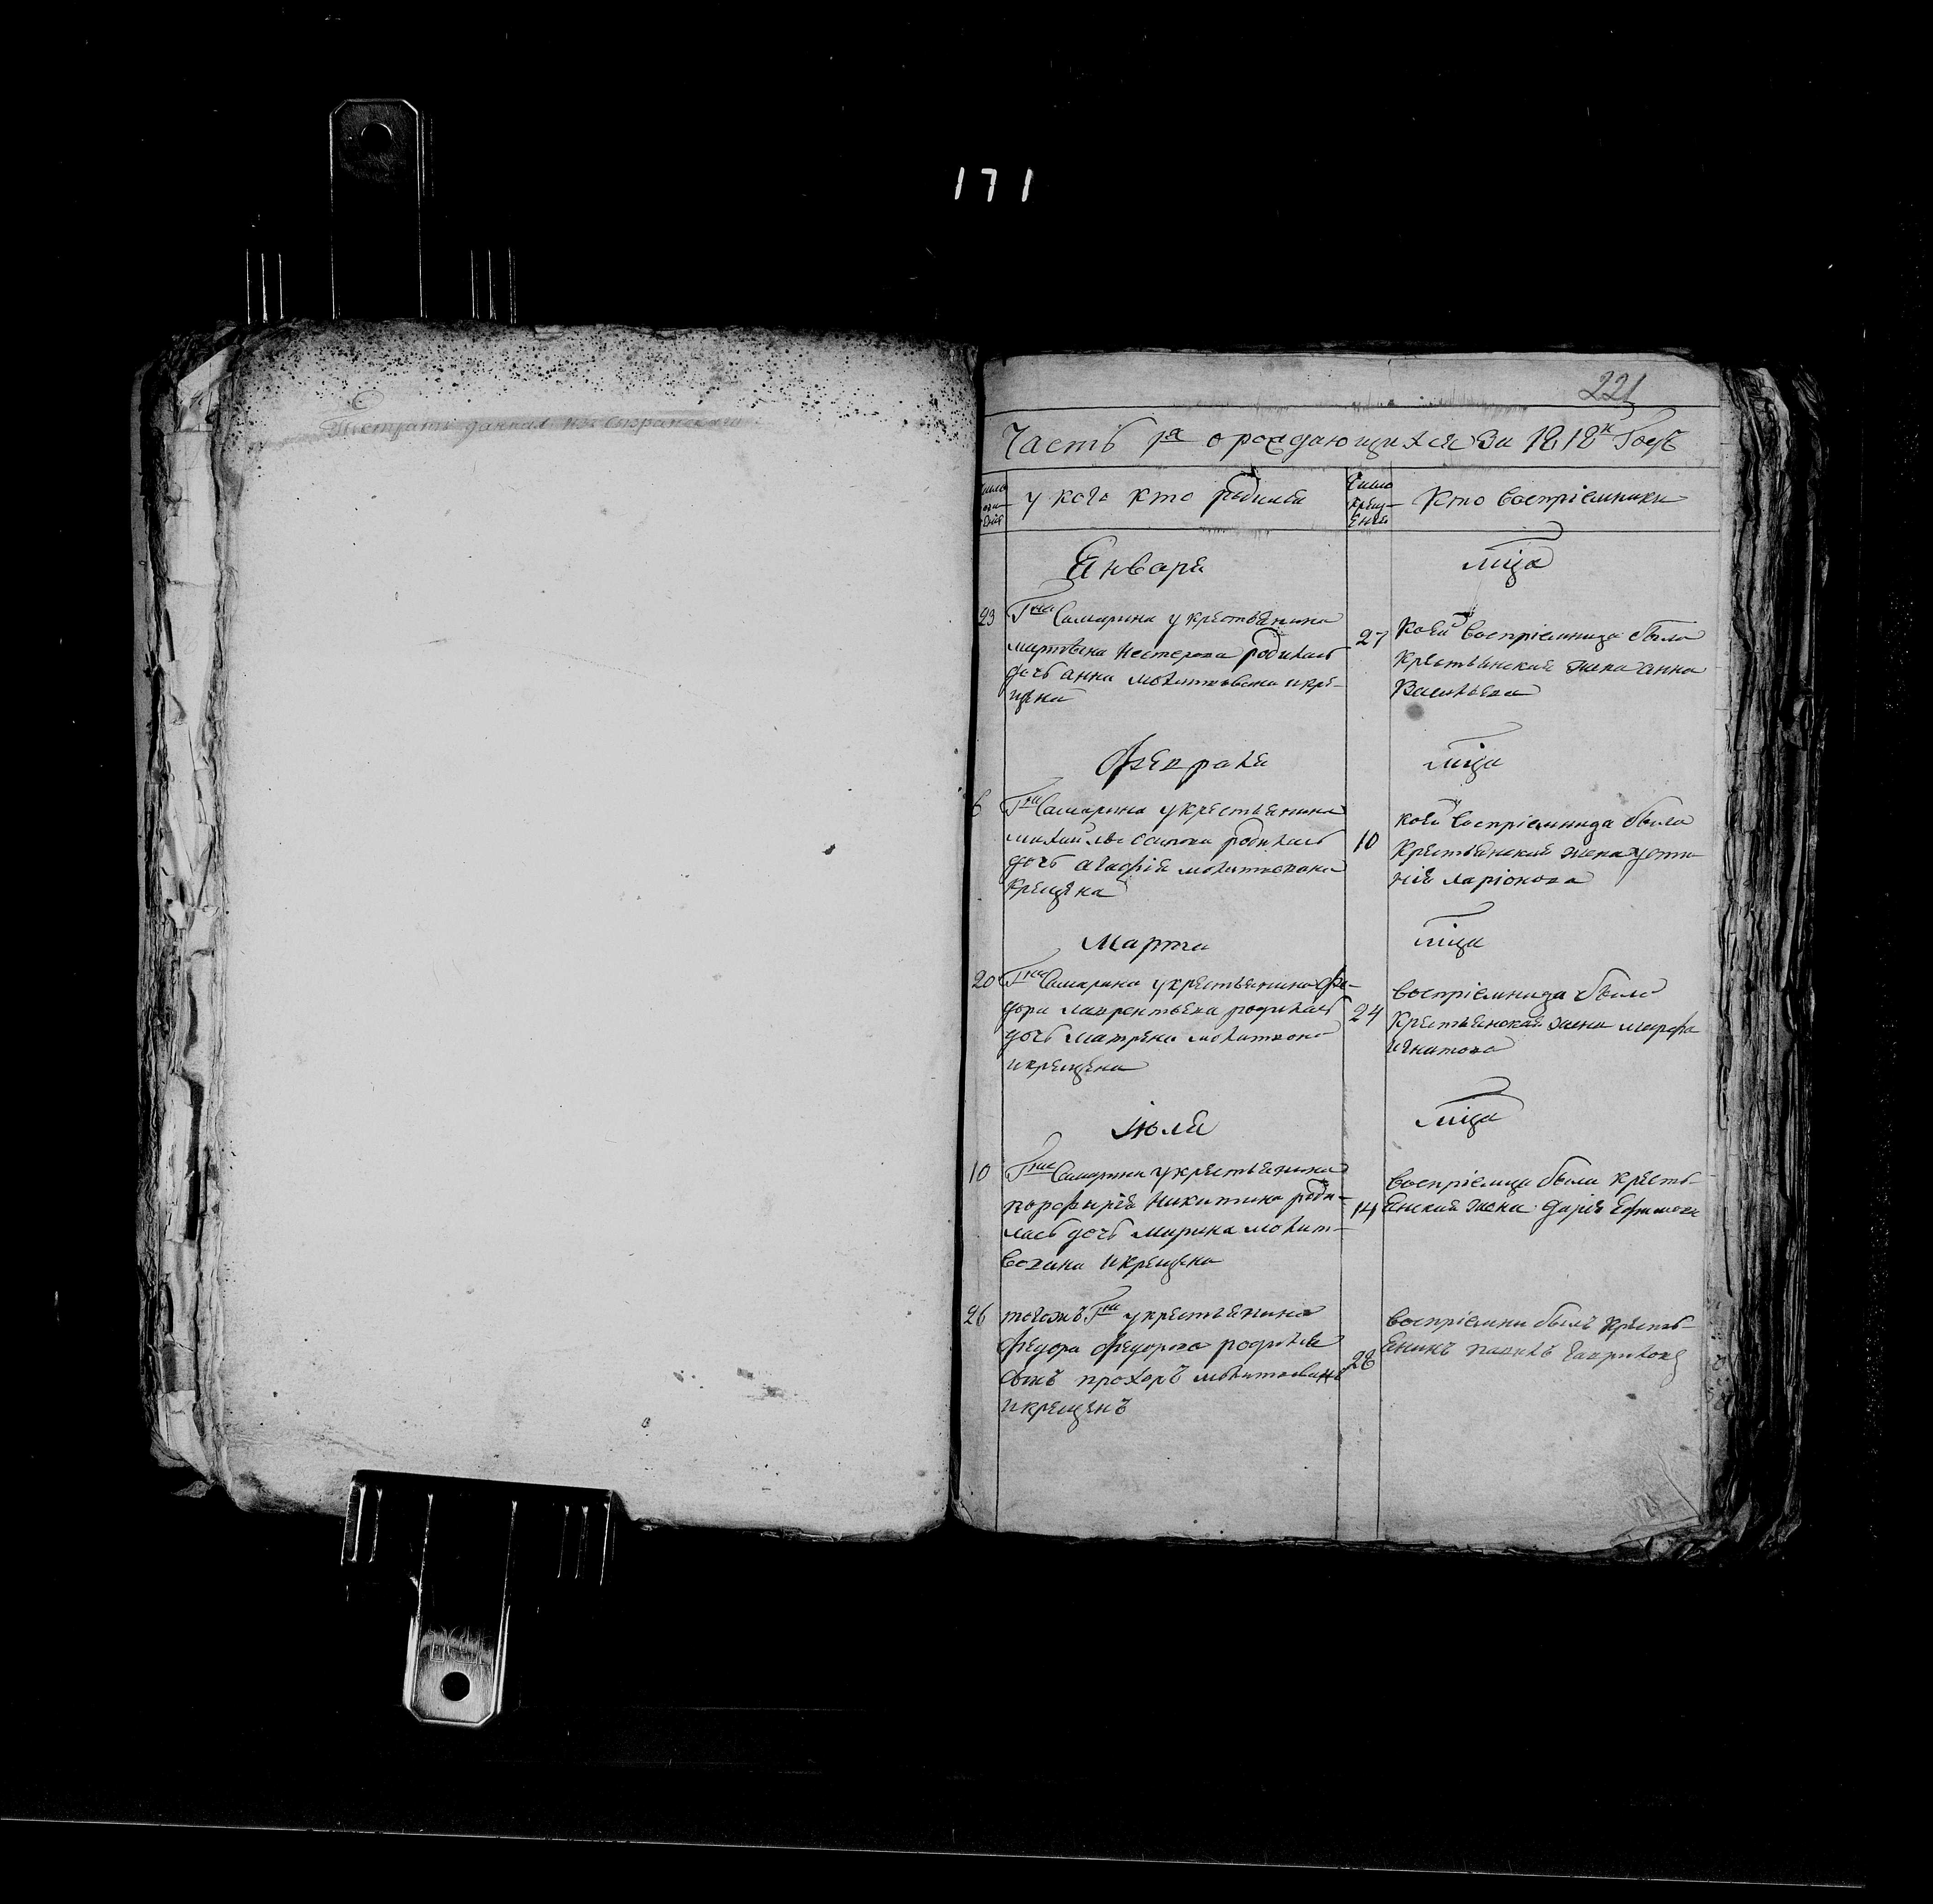 171
221
Часть 1я о рождающихся за 1818й Годъ
Число
рож-
дѣнія
у кого кто родился
Число
крещ-
ѣнія
Кто воспріемники
Января
мца
23
Гна Самарина у крестьянина
мартына Нестерова родилась
дочь анна молитвована и кре-
щена
27
коей воспріемница была
Крестьянская жена анна
Васильева
Февраля
мца
6
Гна Самарина у крестьянина
михайлы осипова родилась
дочь агафія молитвована
крещена
10
коей воспріемница была
Крестьянская жена усти-
нія ларіонова
Марта
мца
20
Гна Самарина у крестьянина фе-
дора лаврентьева родилась
дочь матрена молитвована
и крещена
24
воспріемница была
Крестьянская жена марфа
игнатова
іюля
мца
10
Гна Самарина у крестьянина
порфирія Никитина роди-
лась дочь марина молит-
вована и крещена
14
воспріемница была кресть-
янская жена дарія Ефимова
26
тогожъ Гна у крестьянина
Федора Федорова родился
сынъ прохоръ молитвованъ
и крещенъ
28
воспріемникъ былъ кресть-
янинъ павилъ гавриловъ